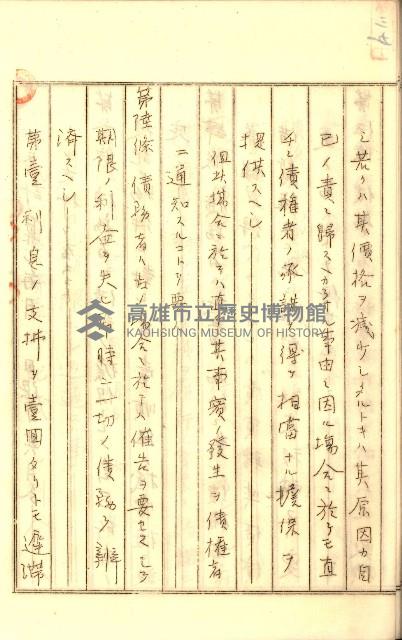 シ若クハ其價格ヲ減少シタルトキハ其原因カ自
己ノ責ニ歸スヘカラサル事由ニ因ル場合ニ於テモ直
チニ債權者ノ承諾ヲ得テ相當ナル擔保ヲ
提供スヘシ
但此場合ニ於テハ直ニ其事實ノ發生ヲ債權者
ニ通知スルコトヲ要ス
第陸條 債務者ハ左ノ場合ニ於テハ催告ヲ要セスシテ
期限ノ利益ヲ失シ即時ニ一切ノ債務ヲ辨
濟スヘシ
第壹 利息ノ支拂ヲ壹回タリトモ遲滯
高雄市立歷史博物館
KAOHSIUNG MUSEUM OF HISTORY